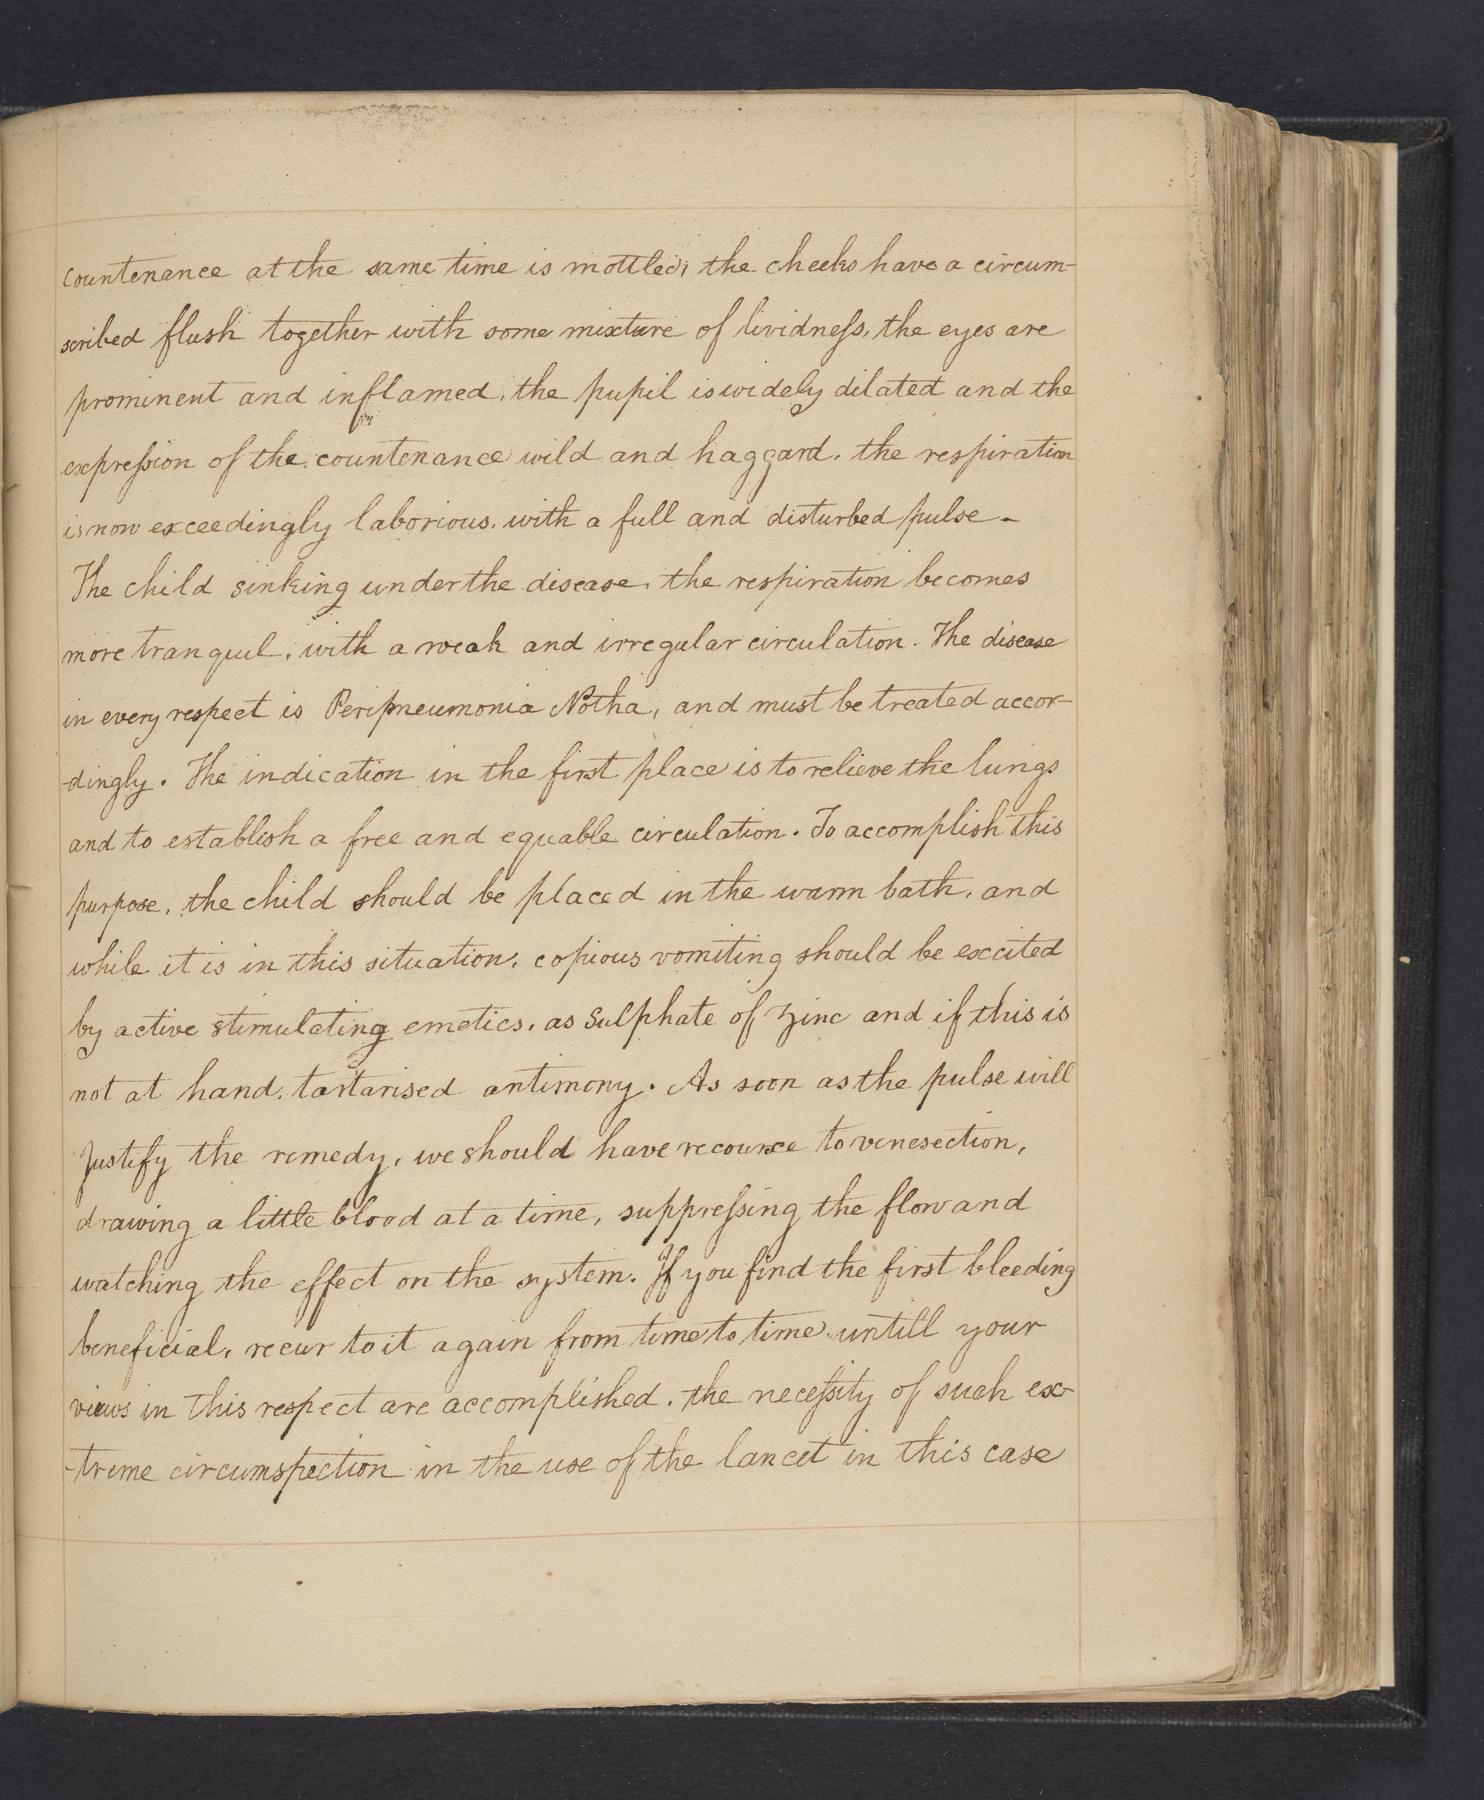 countenance at the same time is mottled, the cheeks have a circum-
scribed flush together with some mixture of lividneſs, the eyes are
prominent and inflamed, the pupil is widely dilated and the
expreſsion of the countenance wild and haggard. the respiration
is now exceedingly laborious, with a full and disturbed pulse -
The child sinking under the disease, the respiration becomes
more tranquil, with a weak and irregular circulation. The disease
in every respect is Peripneumonia Notha, and must be treated accor-
-dingly. The indication in the first place is to relieve the lungs
and to establish a free and equable circulation. To accomplish this
purpose, the child should be placed in the warm bath, and
while it is in this situation, copious vomiting should be excited
by active stimulating emetics, as Sulphate of Zinc and if this is
not at hand, tartarised antimony. As soon as the pulse will
Justify the remedy, we should have recource to venesection,
drawing a little blood at a time, suppreſsing the flow and
watching the effect on the system. If you find the first bleeding
beneficial, recur to it again from time to time untill your
views in this respect are accomplished. the neceſsity of such ex-
-treme circumspection in the use of the lancet in this case